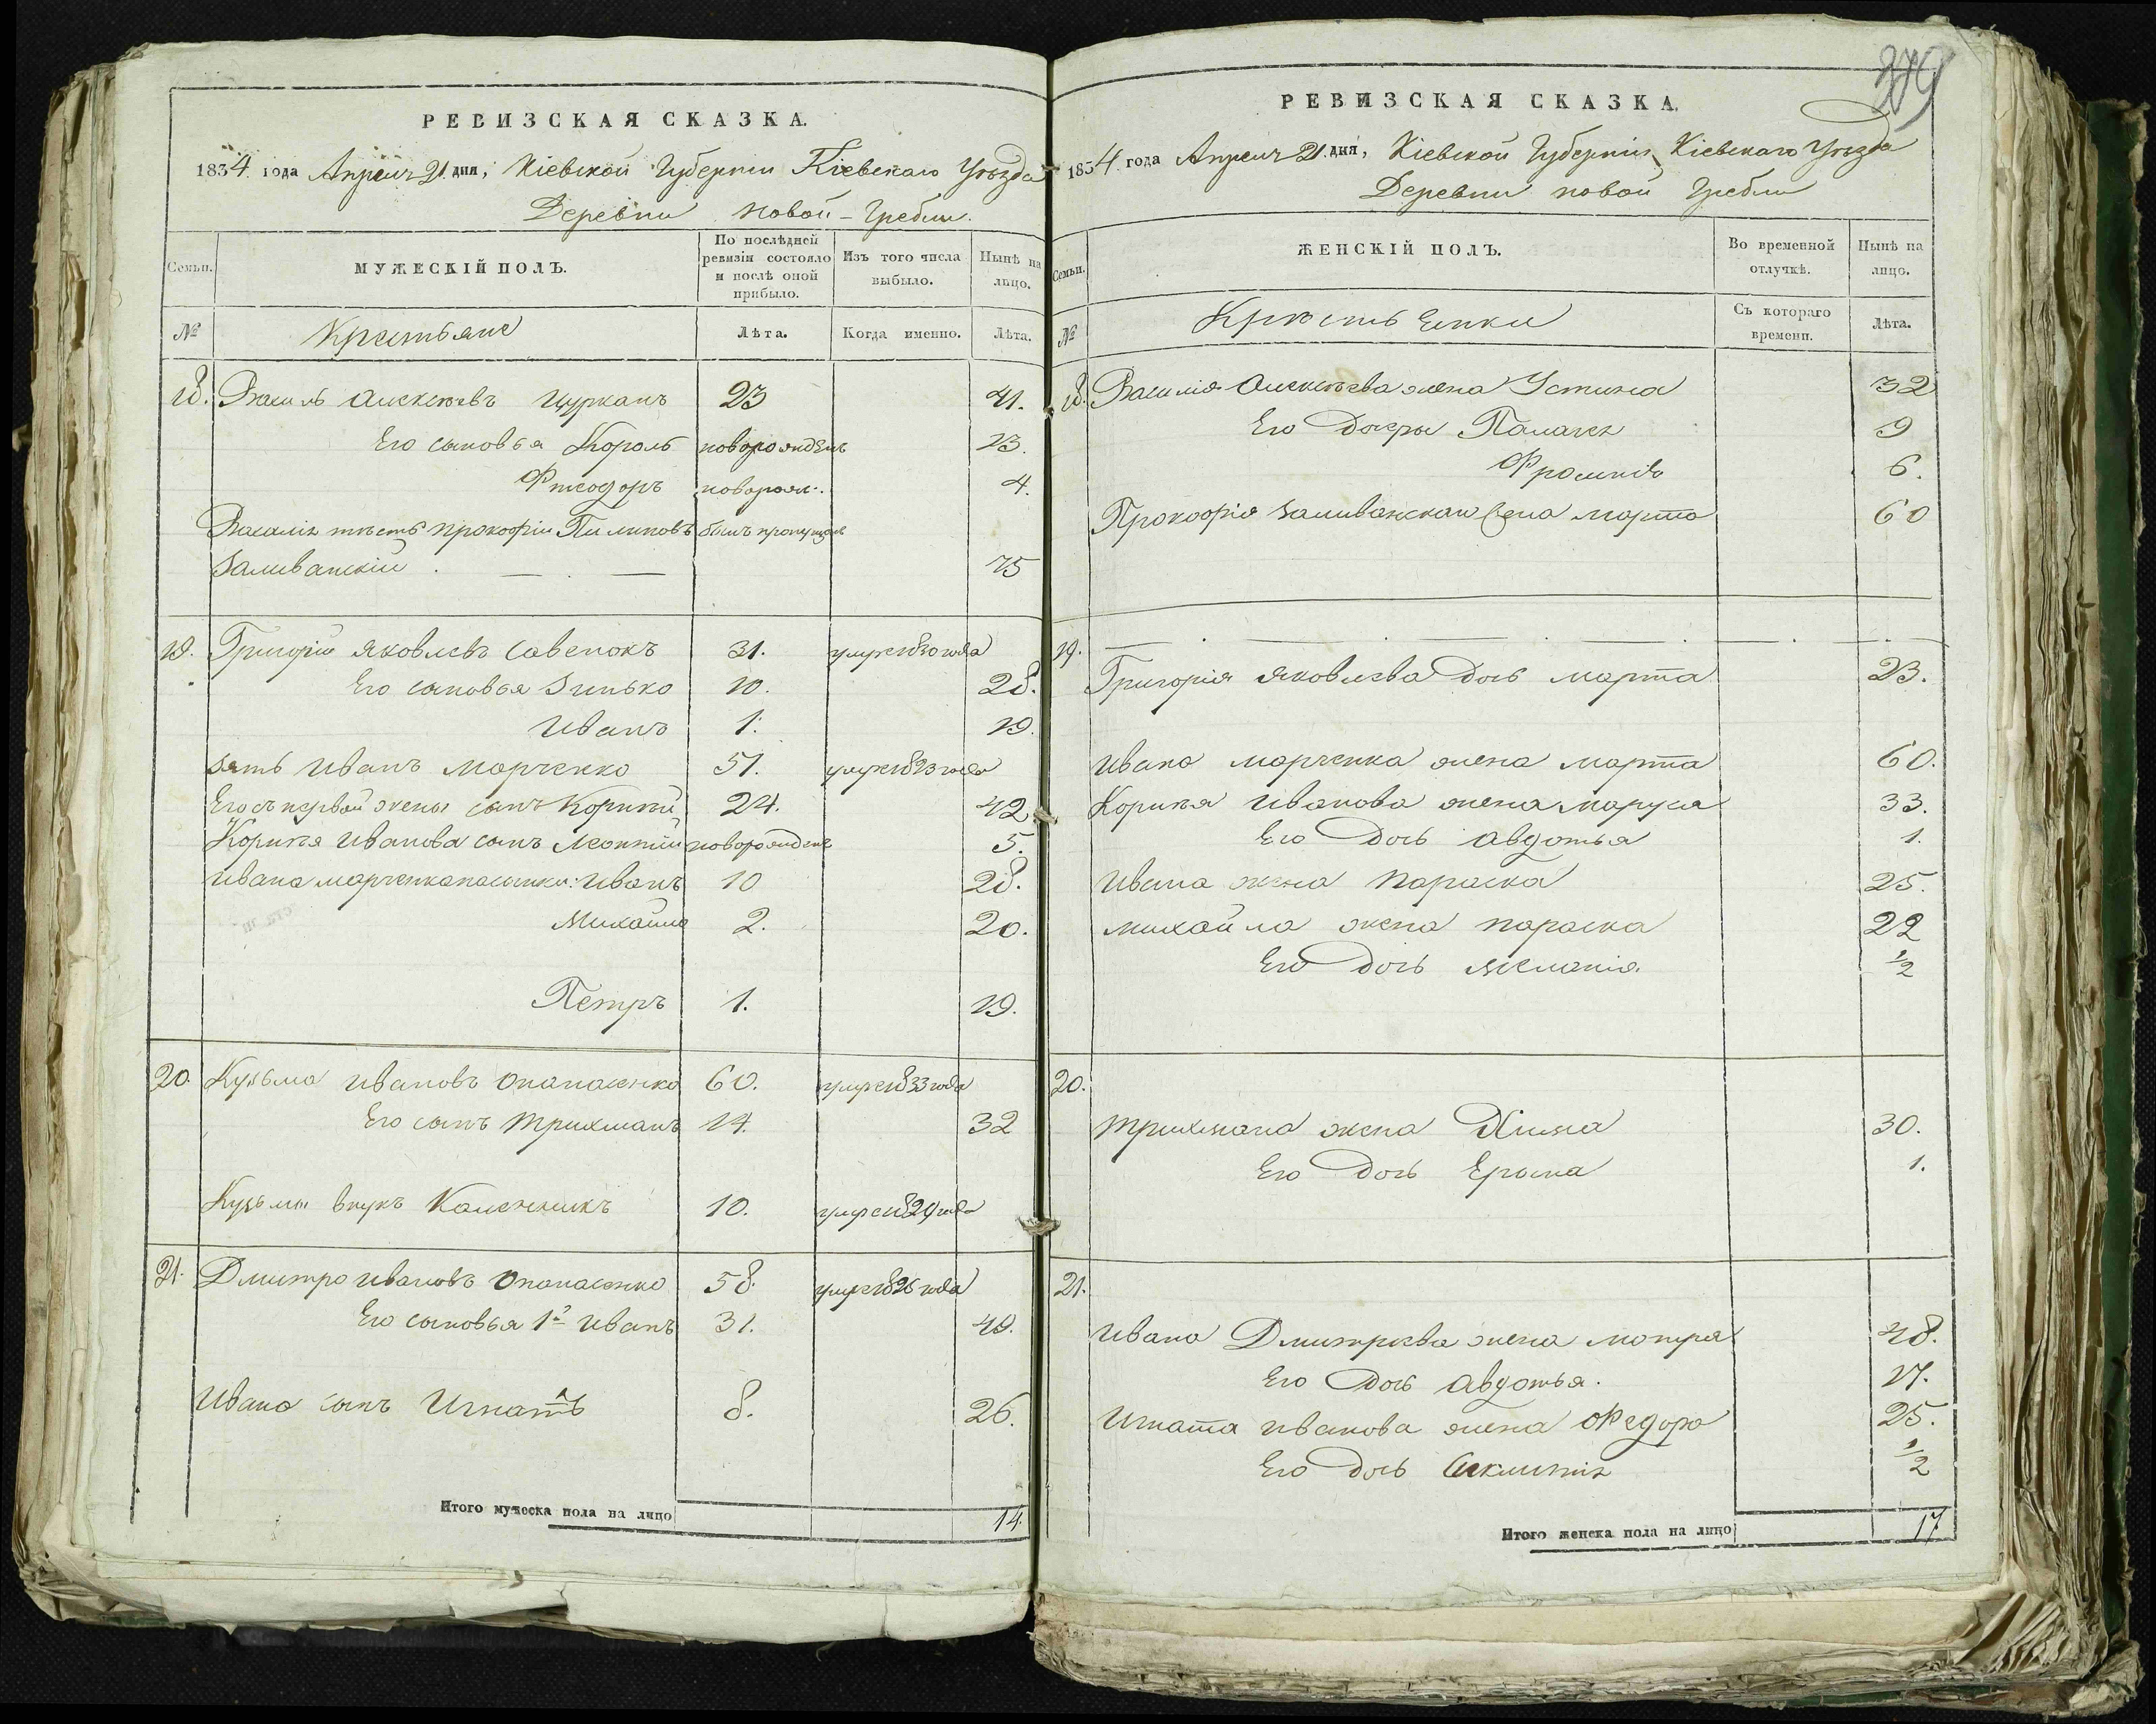 РЕВИЗСКАЯ СКАЗКА.
1834 года Апреля 21 дня, Кіевской Губерніи Кіевскаго Уѣзда
Деревни Новой-Гребли.
Семьи.
МУЖЕСКІЙ ПОЛЪ.
По послѣдней ревизіи состояло и послѣ оной прибыло.
Изъ того числа выбыло.
Нынѣ на лицо.
№
Крестьяне
Лѣта.
Когда именно.
Лѣта.
18. Василь Алексѣевъ Цурканъ 23 41.
Его сыновья Король новорожденъ 13.
Фтеодоръ новорож: 4.
Василія тѣсть Прокофій Пилиповъ былъ пропущенъ
Заливанскій . — . — 75
19. Григорій Яковлевъ Савенокъ 31. умре 1830 года
Его сыновья Зинько 10. 28.
Иванъ 1. 19.
Зять Иванъ Марченко 51. умре 1823 года
Его съ первой жены сынъ Корнѣй 24. 42
Корнѣя Иванова сынъ Леонтій новорожденъ 5.
Ивана Марченка пасынки: Иванъ 10 28.
Михайло 2. 20.
Петръ 1. 19.
20. Кузьма Ивановъ Опанасенко 60. умре 1833 года
Его сынъ 14. 32
Кузьмы внукъ 10. умре 1829 года
21. Дмитро Ивановъ Опанасенко 58. умре 1826 года
Его сыновья 1й Иванъ 31. 49.
Ивана сынъ Игнатъ 8. 26.
Итого мужеска пола на лицо 14.
РЕВИЗСКАЯ СКАЗКА.
1834 года Апреля 21 дня, Кіевской Губерніи Кіевскаго Уѣзда
Деревни Новой Гребли
Семьи.
ЖЕНСКІЙ ПОЛЪ.
Во временной отлучкѣ.
Нынѣ на лицо.
№
Крестьянки
Съ котораго времени.
Лѣта.
18. Василія Алексѣева жена Устина 32
Его дочеры 9
6.
Прокофія Заливанскаго жена Марта 60
19.
Григорія Яковлева дочь Марта 23.
Ивана Марченка жена Марта 60.
Корнѣя Иванова жена Маруся 33.
Его дочь Авдотья 1.
Ивана жена Параска 25.
Михайла жена Параска 22
Его дочь Меланія 1/2
20.
жена Хима 30.
Его дочь 1.
21.
Ивана Дмитріева жена Мотря 48.
Его дочь Авдотья. 17.
Игната Иванова жена Федора 25.
Его дочь 1/2
Итого женска пола на лицо 17